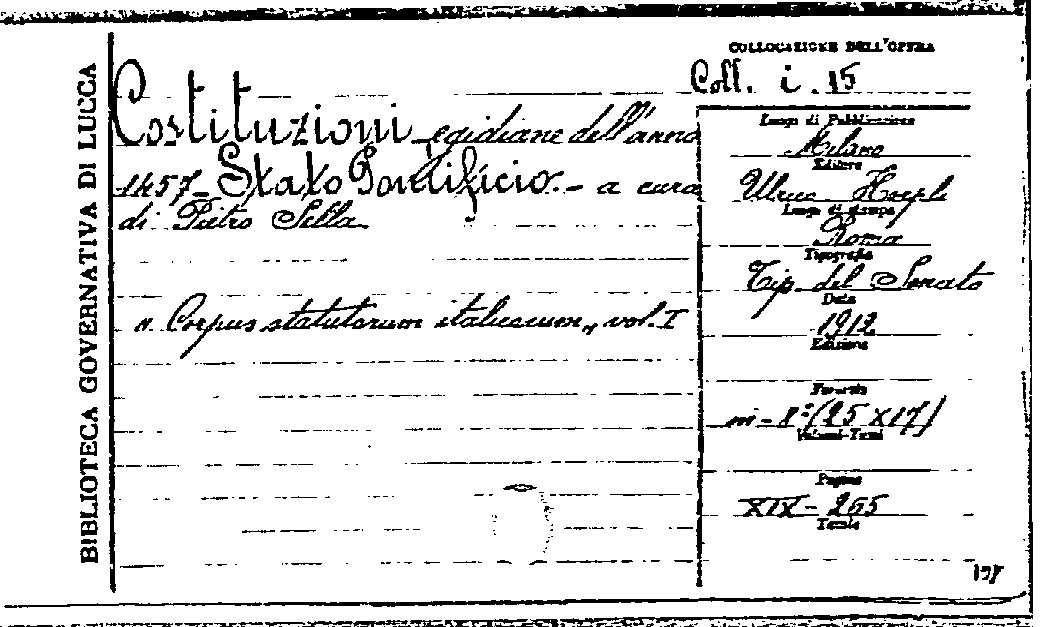 BIBLIOTECA GOVERNATIVA DI LUCCA
COLLOCAZIONE DELL'OPERA
Coll. i. 15
Costituzioni egidiane dell'anno
1457 - Stato Pontificio. - a cura
di Pietro Sella
« Corpus statutorum italicarum „ vol. I
Luogo di Pubblicazione
Milano
Editore
Ulrico Hoepli
Luogo di stampa
Roma
Tipografia
Tip. del Senato
Data
1912
Edizione
Formato
in - 8º (25 X 17)
Volumi-Tomi
Pagine
XIX - 265
Tavole